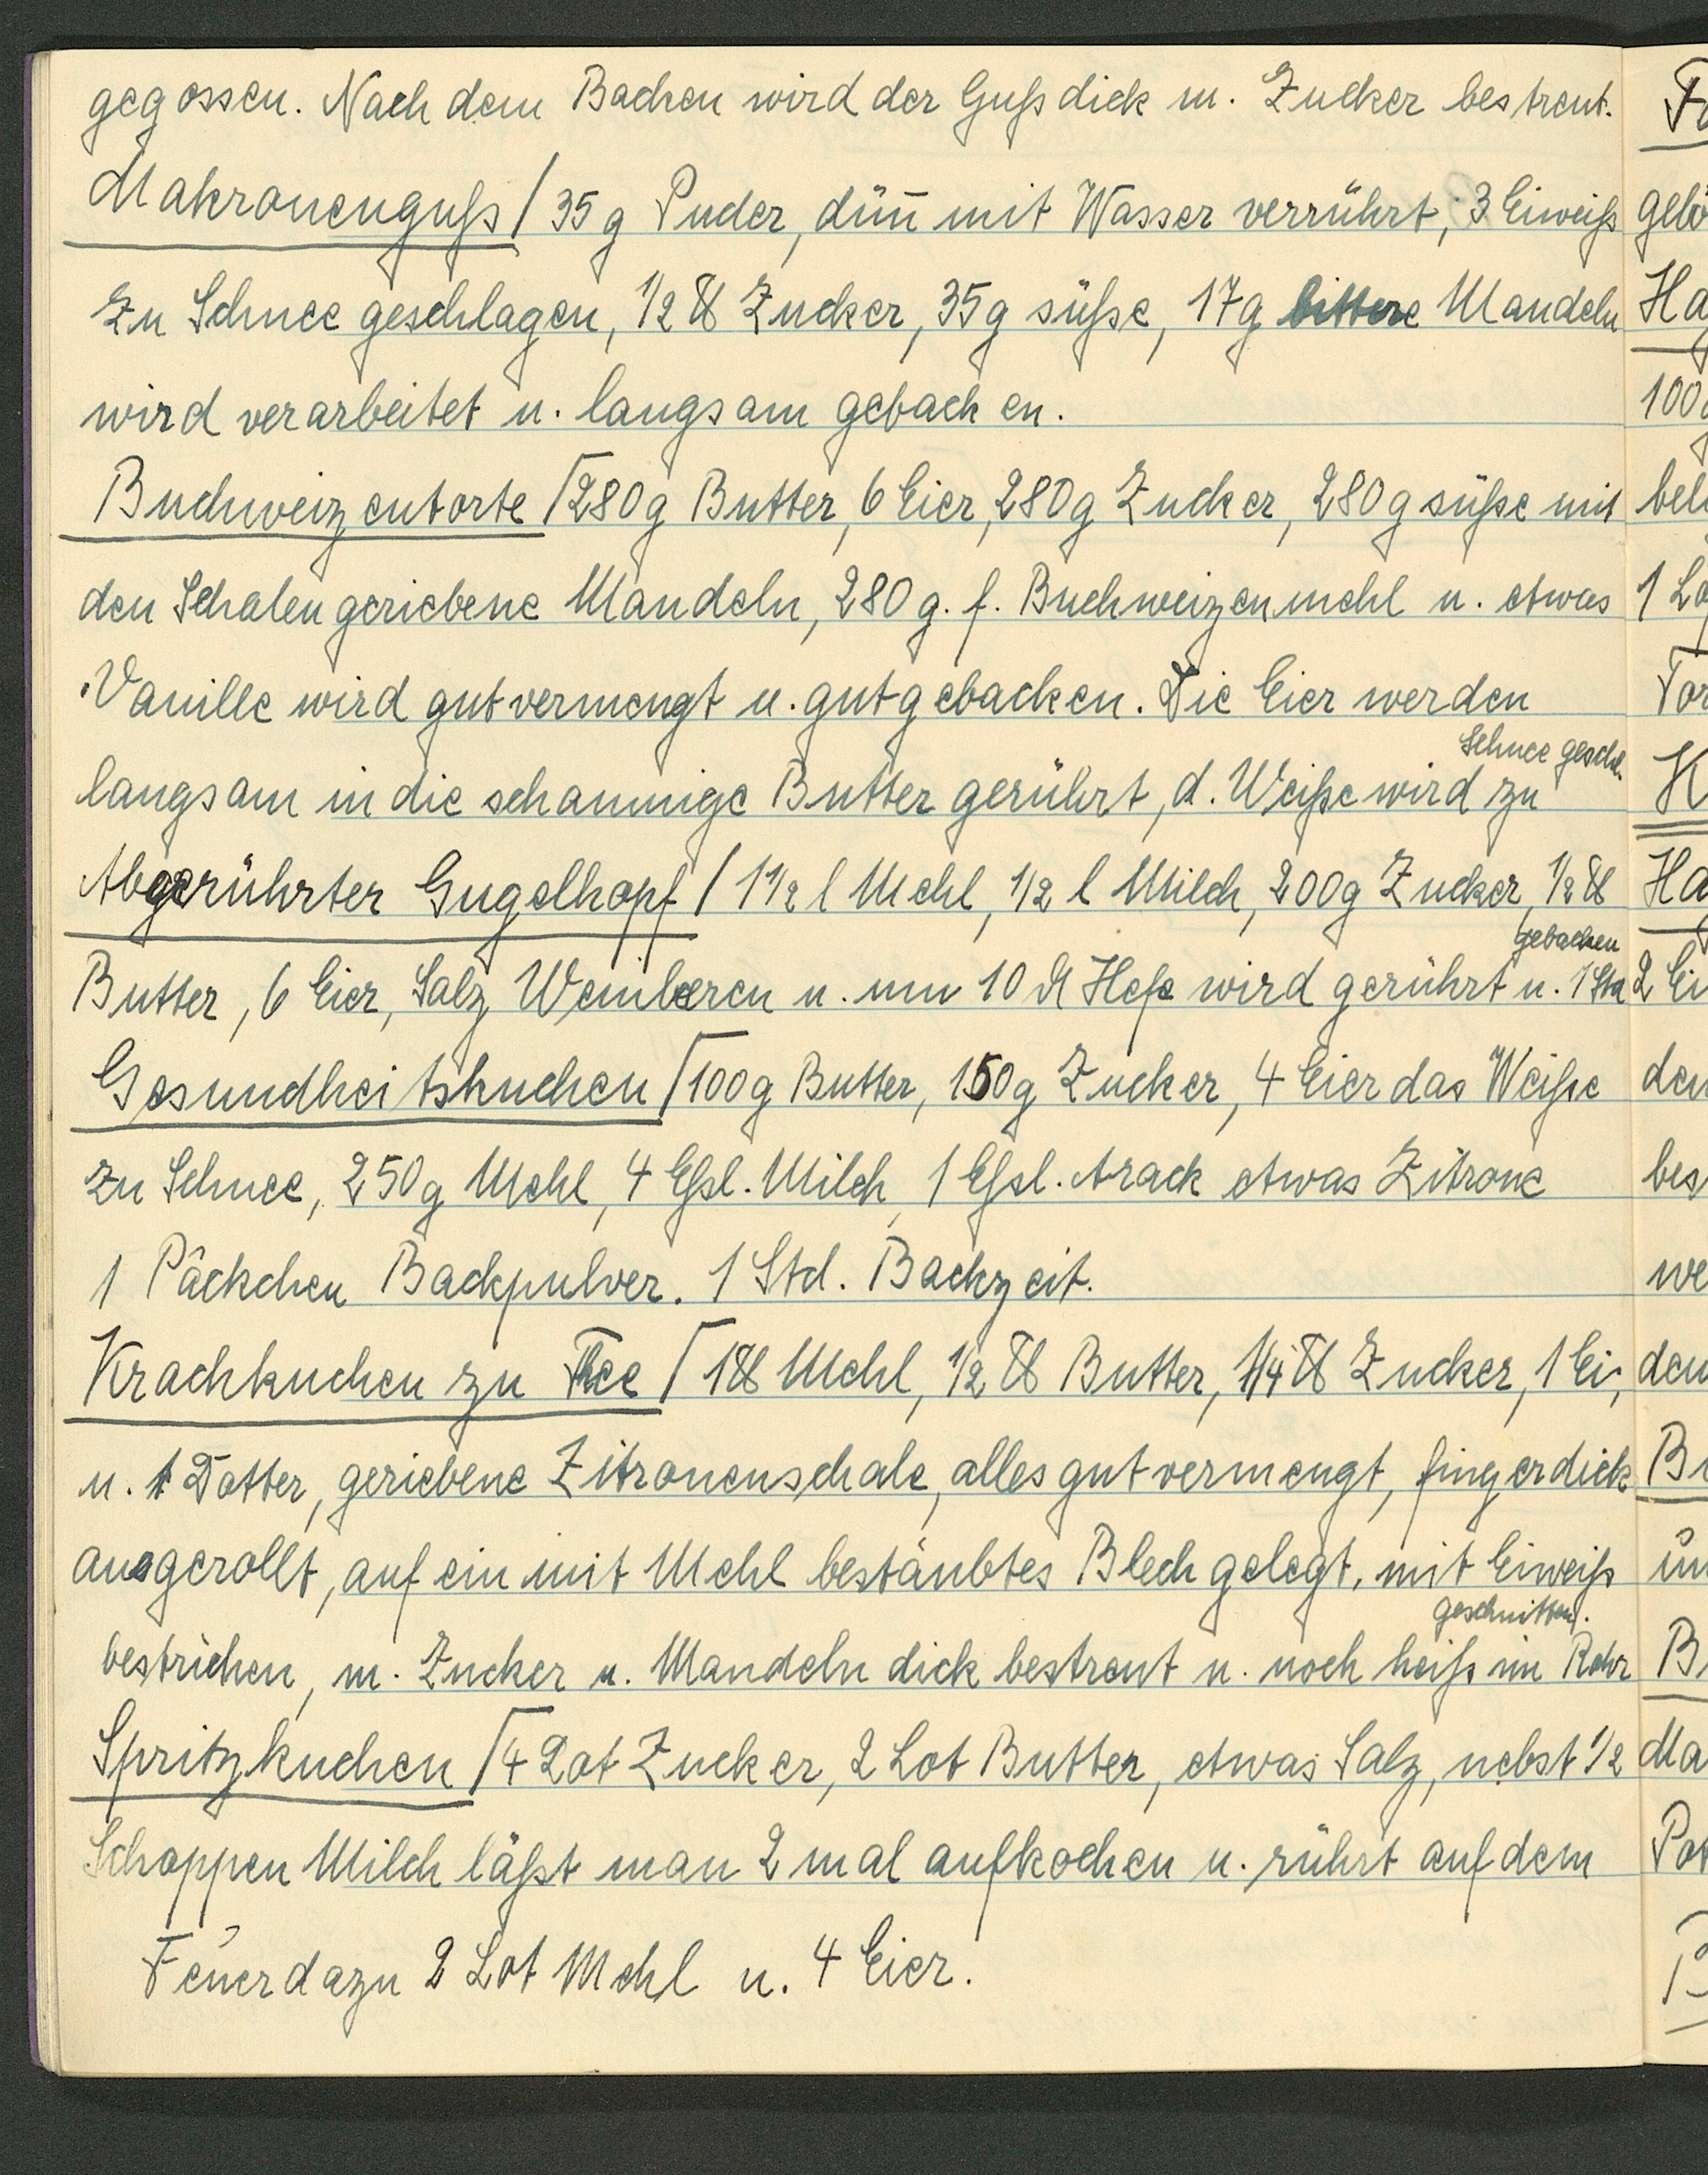 gegossen. Nach dem Backen wird der Guß dick m. Zucker bestreut.
Makronenguß / 35 g Puder, dün̄ mit Wasser verrührt, 3 Eiweiß
zu Schnee geschlagen, 1/2 ℔ Zucker, 35 g süße, 17 g bittere Mandeln
wird verarbeitet u. langsam gebacken.
Buchweizentorte / 280 g Butter, 6 Eier, 280 g Zucker, 280 g süße mit
den Schalen geriebene Mandeln, 280 g. f. Buchweizenmehl u. etwas
Vanille wird gut vermengt u. gut gebacken. Die Eier werden
langsam in die schaumige Butter gerührt, d. Weiße wird zu Schnee geschl.
Abgerührter Gugelhopf / 1 1/2 l Mehl, 1/2 l Milch, 200 g Zucker, 1/2 ℔
Butter, 6 Eier, Salz, Weinberen u. um 10 Hefe wird gerührt u. 1 Std gebacken
Gesundheitskuchen / 100 g Butter, 150 g Zucker, 4 Eier das Weiße
zu Schnee, 250 g Mehl, 4 Eßl. Milch, 1 Eßl. Arack etwas Zitrone
1 Päckchen Backpulver. 1 Std. Backzeit.
Krachkuchen zu Thee / 1 ℔ Mehl, 1/2 ℔ Butter, 1/4 ℔ Zucker, 1 Ei,
u. 1 Dotter, geriebene Zitronenschale, alles gut vermengt, fingerdick
ausgerollt, auf ein mit Mehl bestäubtes Blech gelegt, mit Eiweiß
bestrichen, m. Zucker u. Mandeln dick bestreut u. noch heiß im Rohr geschnitten.
Spritzkuchen / 4 Lot Zucker, 2 Lot Butter, etwas Salz, nebst 1/2
Schoppen Milch läßt man 2 mal aufkochen u. rührt auf dem
Feuer dazu 2 Lot Mehl u. 4 Eier.